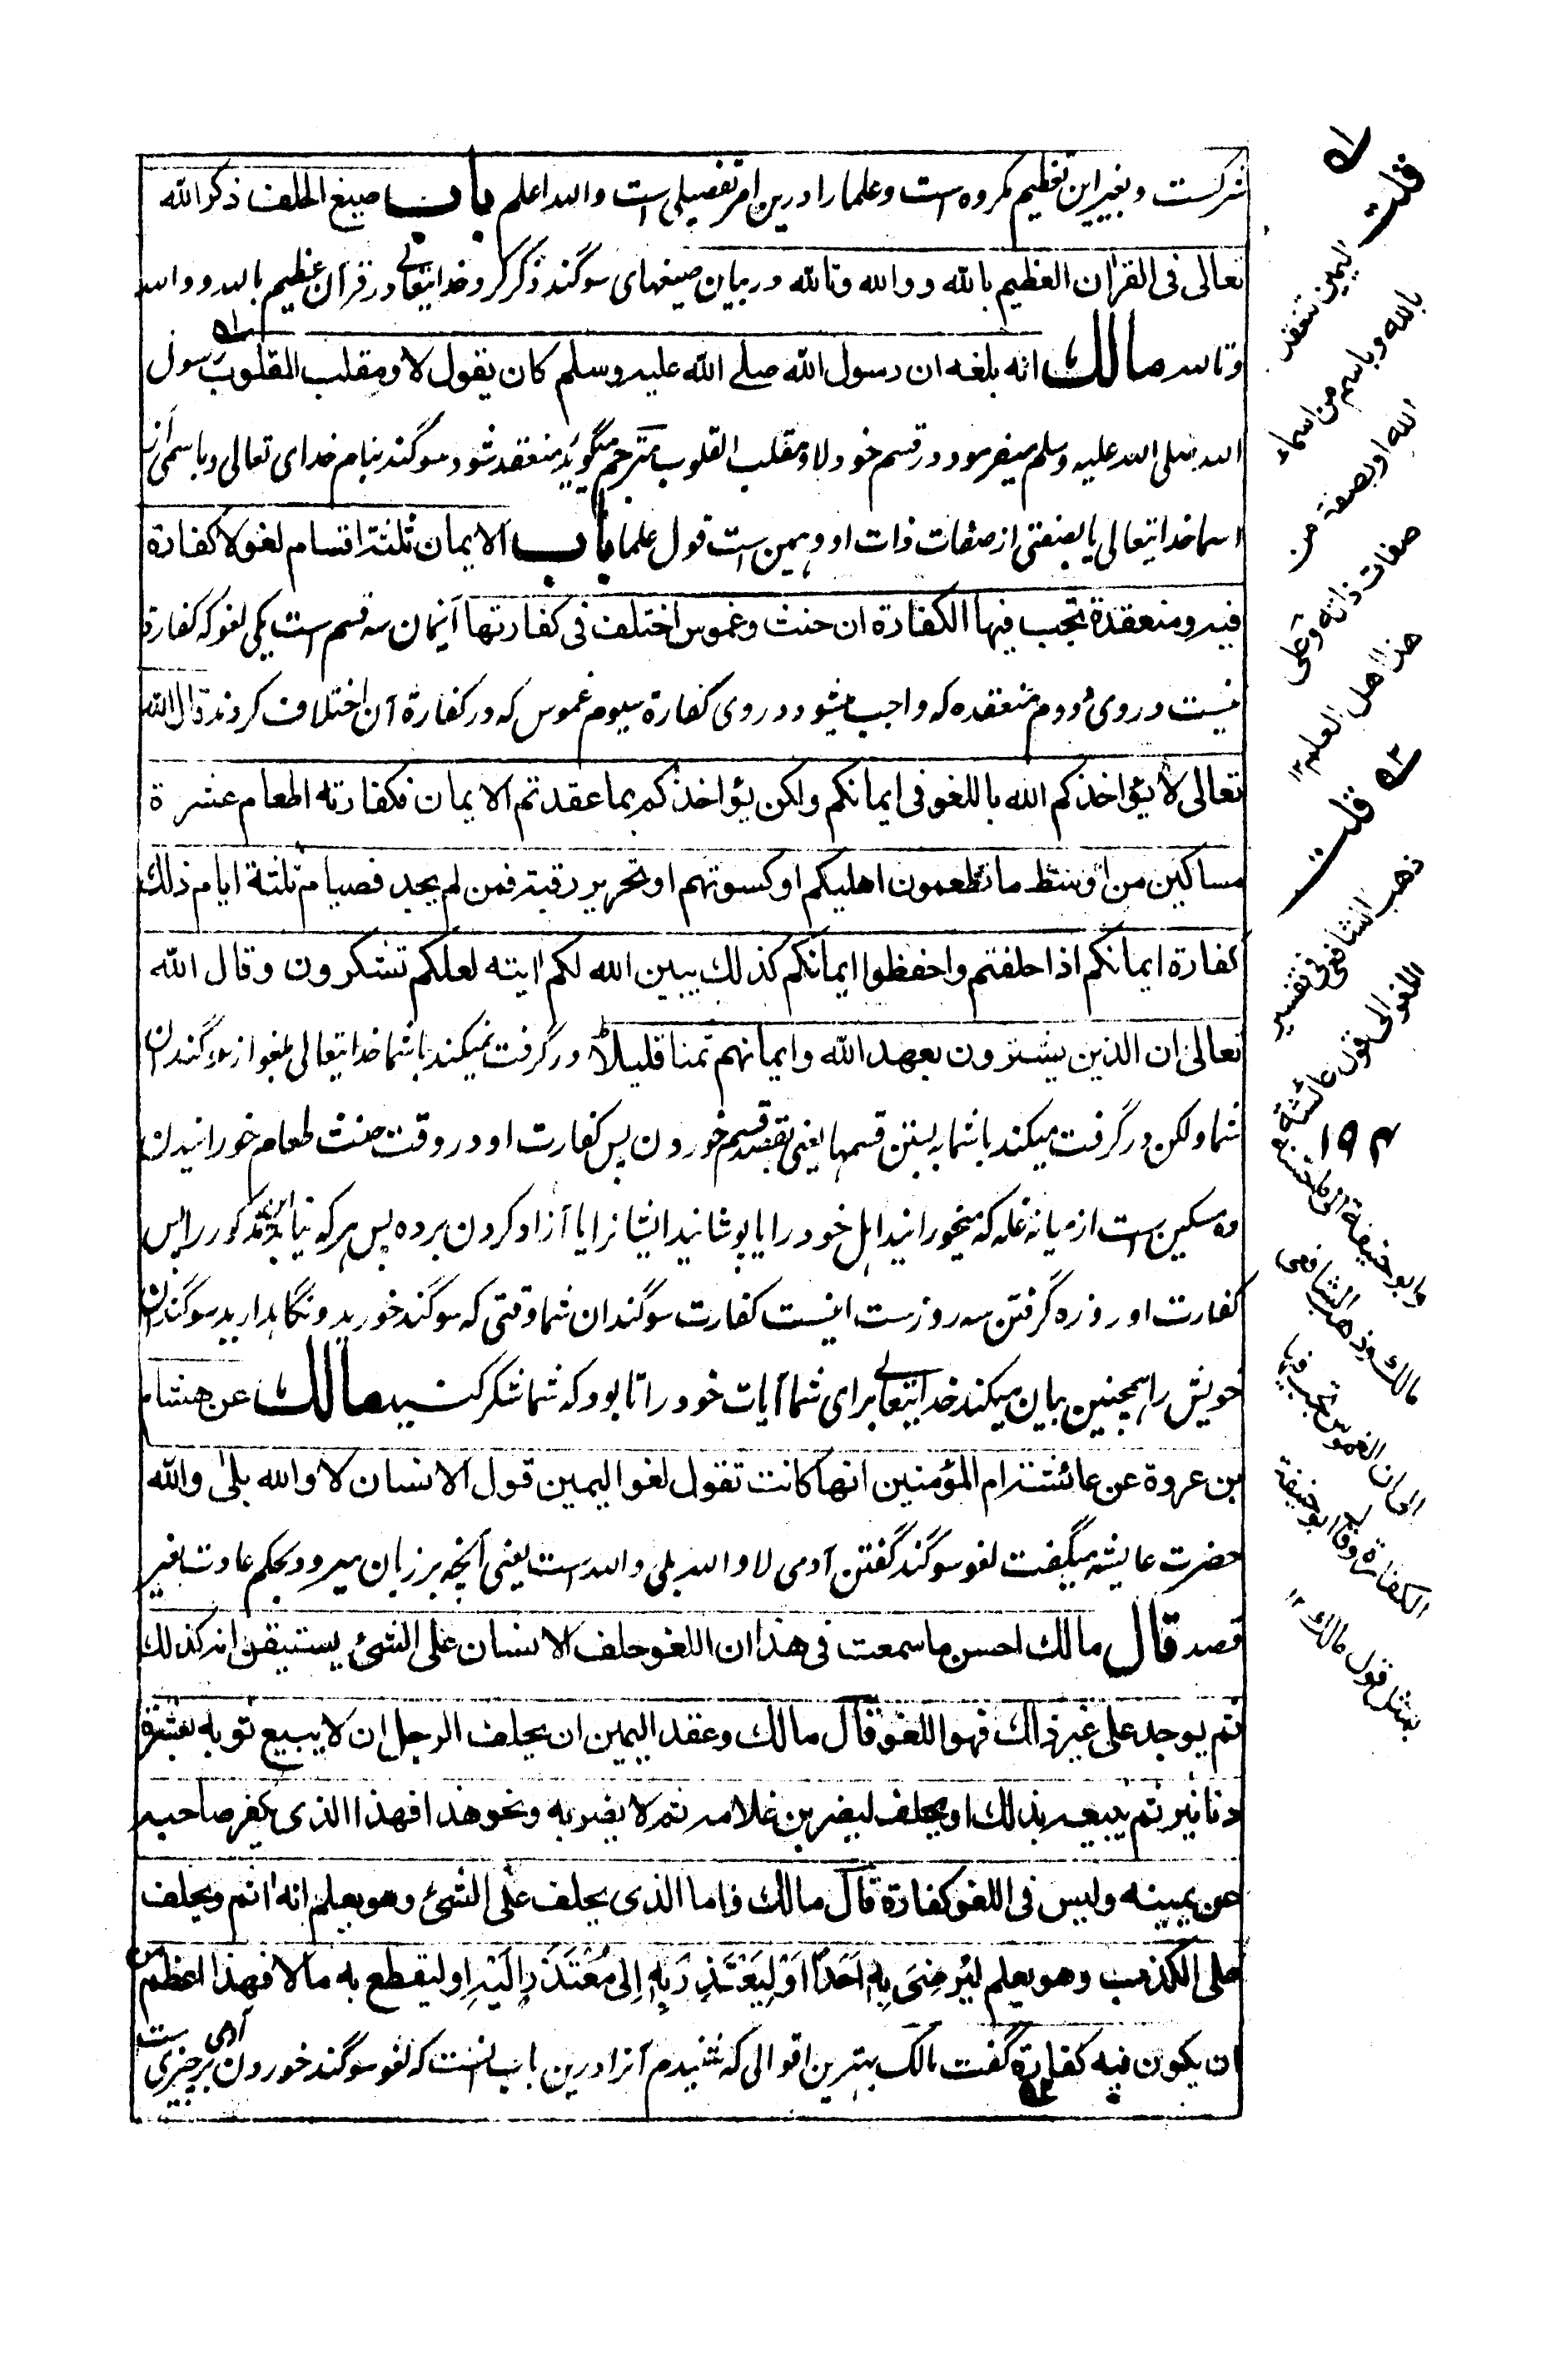 شرکست و بغیر این تعظیم مکروه است و علما را درین امر تفصیلی است والله اعلم باب صیغ الحلف ذکر الله
تعالی فی القرآن العظیم بالله و والله وتالله در بیان صیغهای سوگند ذکر کرد خدایتعالی در قرآن عظیم بالله و والله
وتالله مالك انه بلغه ان رسول الله صلے الله علیه وسلم کان یقول لا ومقلب القلوب رسول
الله صلی الله علیه وسلم میفرمود در قسم خود لا ومقلب القلوب مترجم میگوید منعقد شود سوگند بنام خدای تعالی و باسمی از
اسما خدایتعالی یا بصفتی از صفات ذات او و همین است قول علما باب الایمان ثلثة اقسام لغو لا کفارة
فیه ومنعقدة تجب فیها الکفارة ان حنث وغموس اختلف فی کفارتها ایمان سه قسم است یکی لغو که کفارة
نیست در وی دوم منعقده که واجب میشود در وی کفارة سیوم غموس که در کفارة آن اختلاف کردند قال الله
تعالی لا یؤاخذکم الله باللغو فی ایمانکم ولکن یؤاخذکم بما عقدتم الایمان فکفارته اطعام عشرة
مساکین من اوسط ما تطعمون اهلیکم او کسوتهم او تحریر رقبة فمن لم یجد فصیام ثلثة ایام ذلك
کفارة ایمانکم اذا حلفتم واحفظوا ایمانکم کذلك یبین الله لکم ایته لعلکم تشکرون وقال الله
تعالی ان الذین یشترون بعهد الله وایمانهم ثمنا قلیلا در گرفت نمیکند با شما خدایتعالی بلغو از سوگندان
شما ولکن در گرفت میکند با شما به بستن قسمها یعنی بقصد قسم خوردن پس کفارت او در وقت حنث طعام خورانیدن
ده مسکین است از میانه غله که میخورانید اهل خود را یا پوشانید ایشانرا یا آزاد کردن برده پس هرکه نیابد این مذکور را پس
کفارت او روزه گرفتن سه روزست اینست کفارت سوگندان شما وقتی که سوگند خورید و نگاه دارید سوگندان
خویش را همچنین بیان میکند خدایتعالی برای شما آیات خود را تا بود که شما شکر کنید مالك عن هشام
بن عروة عن عائشة ام المؤمنین انها کانت تقول لغو الیمین قول الانسان لا والله بلی والله
حضرت عایشه میگفت لغو سوگند گفتن آدمی لا والله بلی والله است یعنی آنچه بر زبان میرود بحکم عادت بغیر
قصد قال مالك احسن ما سمعت فی هذا ان اللغو حلف الانسان علی الشئ یستیقن انه کذلك
ثم یوجد علی غیر ذلك فهو اللغو قال مالك وعقد الیمین ان یحلف الرجل ان لا یبیع ثوبه بعشرة
دنانیر ثم یبیعه بذلك او یحلف لیضربن غلامه ثم لا یضربه ونحو هذا فهذا الذی یکفر صاحبه
عن یمینه ولیس فی اللغو کفارة قال مالك فاما الذی یحلف علی الشئ وهو یعلم انه اثم ویحلف
علی الکذب وهو یعلم لیُرضِیَ بِهِ اَحَدًا اَوْ لِیَعْتَذِرَ بِهِ اِلی مُعْتَذَرٍ اِلَیْهِ او لیقطع به مالا فهذا اعظم من
ان یکون فیه کفارة گفت مالک بهترین اقوالی که شنیدم آنرا درین باب اینست که لغو سوگند خوردن آدمی است بر چیزی
له قلت
الیمین تنعقد
بالله وباسم من اسماء
الله او بصفة من
صفات ذاته وعلی
هذا اهل العلم ۱۲
قلت
ذهب الشافعی فی تفسیر
اللغو الی قول عائشة
۱۹۲
وابو حنیفة الی
مالك وذهب الشافعی
الی ان الغموس تجب فیها
الکفارة وقال ابو حنیفة
بمثل قول مالك ۱۲